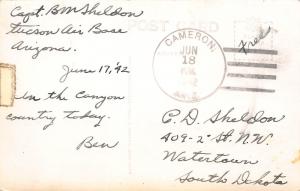 Capt. B M Sheldon
Tucson Air Base
Arizona.
June 17, '42
In the Canyon
country today.
Ben
POST CARD
CAMERON,
JUN
18
ARIZ.
Free
C. D. Sheldon
409-2nd St. N.W.
Watertown
South Dakota